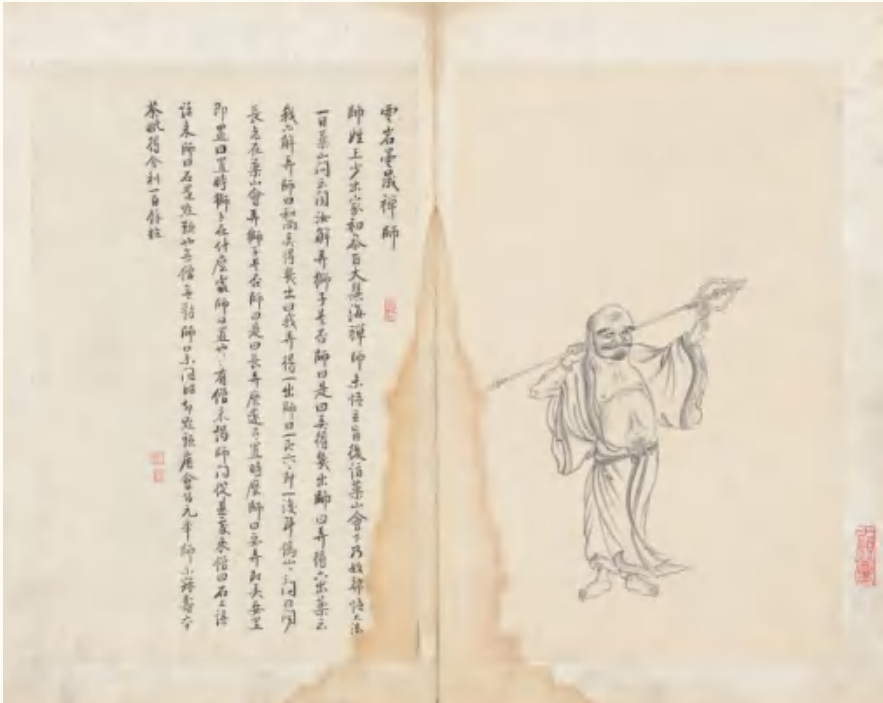 雲岩曇晟禪師
師姓王少出家初參百丈懷海禪師未悟玄旨後詣藥山會下乃悟大法
一日藥山問云聞汝解弄獅子是否師曰是曰弄得幾出師曰弄得六出藥云
我亦解弄師曰和尚弄得幾出曰我弄得一出師曰一即六六即一後到溈山山問曰聞
長老在藥山會弄獅子是否師曰是曰長弄麼還有置時麼師曰要弄即弄要置
即置曰置時獅子在什麼處師曰置也置也有僧來謁師問從甚處來僧曰石上語
話來師曰石還點頭也無僧無對師曰未問時卻點頭唐會昌元年師示寂壽
茶毗得舍利一百餘粒